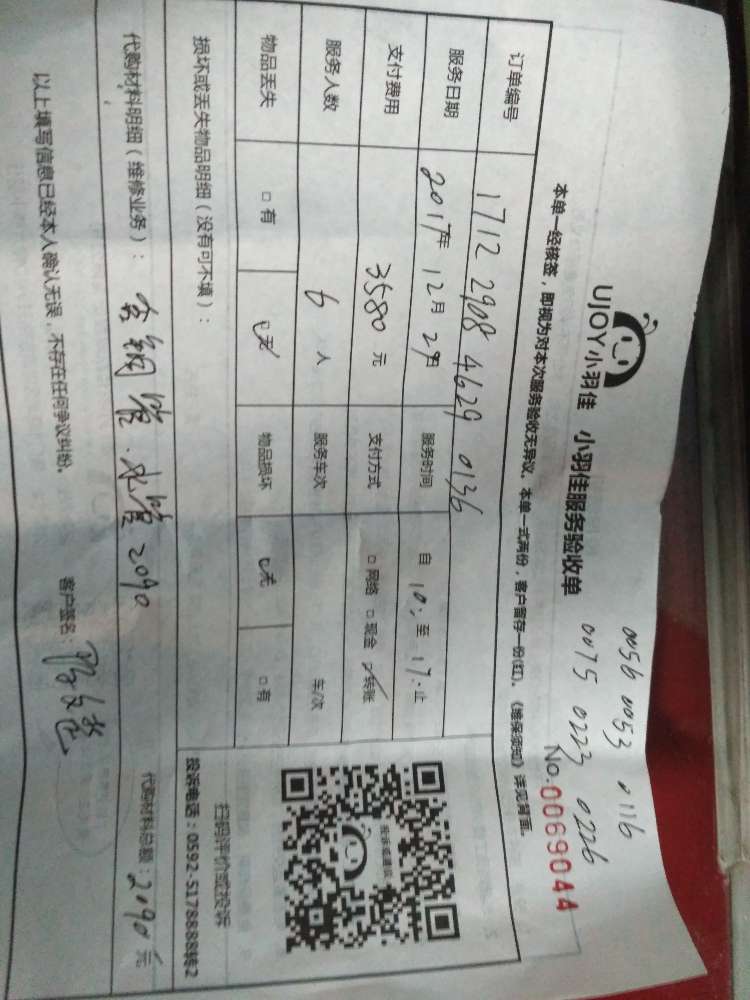 0056 0053 0116
0075 0223 0226
UJOY小羽佳 小羽佳服务验收单
No.0069044
本单一经核签，即视为对本次服务验收无异议。本单一式两份，客户留存一份(红)。《维保须知》详见背面。
订单编号 1712 2908 4629 0136
服务日期 2017年 12月 29日 服务时间 自 10: 至 17: 止
支付费用 3580 元 支付方式 □网络 □现金 ☑转账
服务人数 6 人 服务车次 车/次
物品丢失 □有 ☑无 物品损坏 ☑无 □有
投诉或建议
扫码评价或投诉
损坏或丢失物品明细（没有可不填）：
投诉电话：0592-5178888转2
代购材料明细（维修业务）： 钢管.水管2090
代购材料总额：2090元
以上填写信息已经本人确认无误，不存在任何争议纠纷。
客户签名：